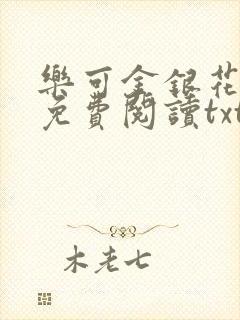 樂可金銀花
免費閱讀txt
木老七